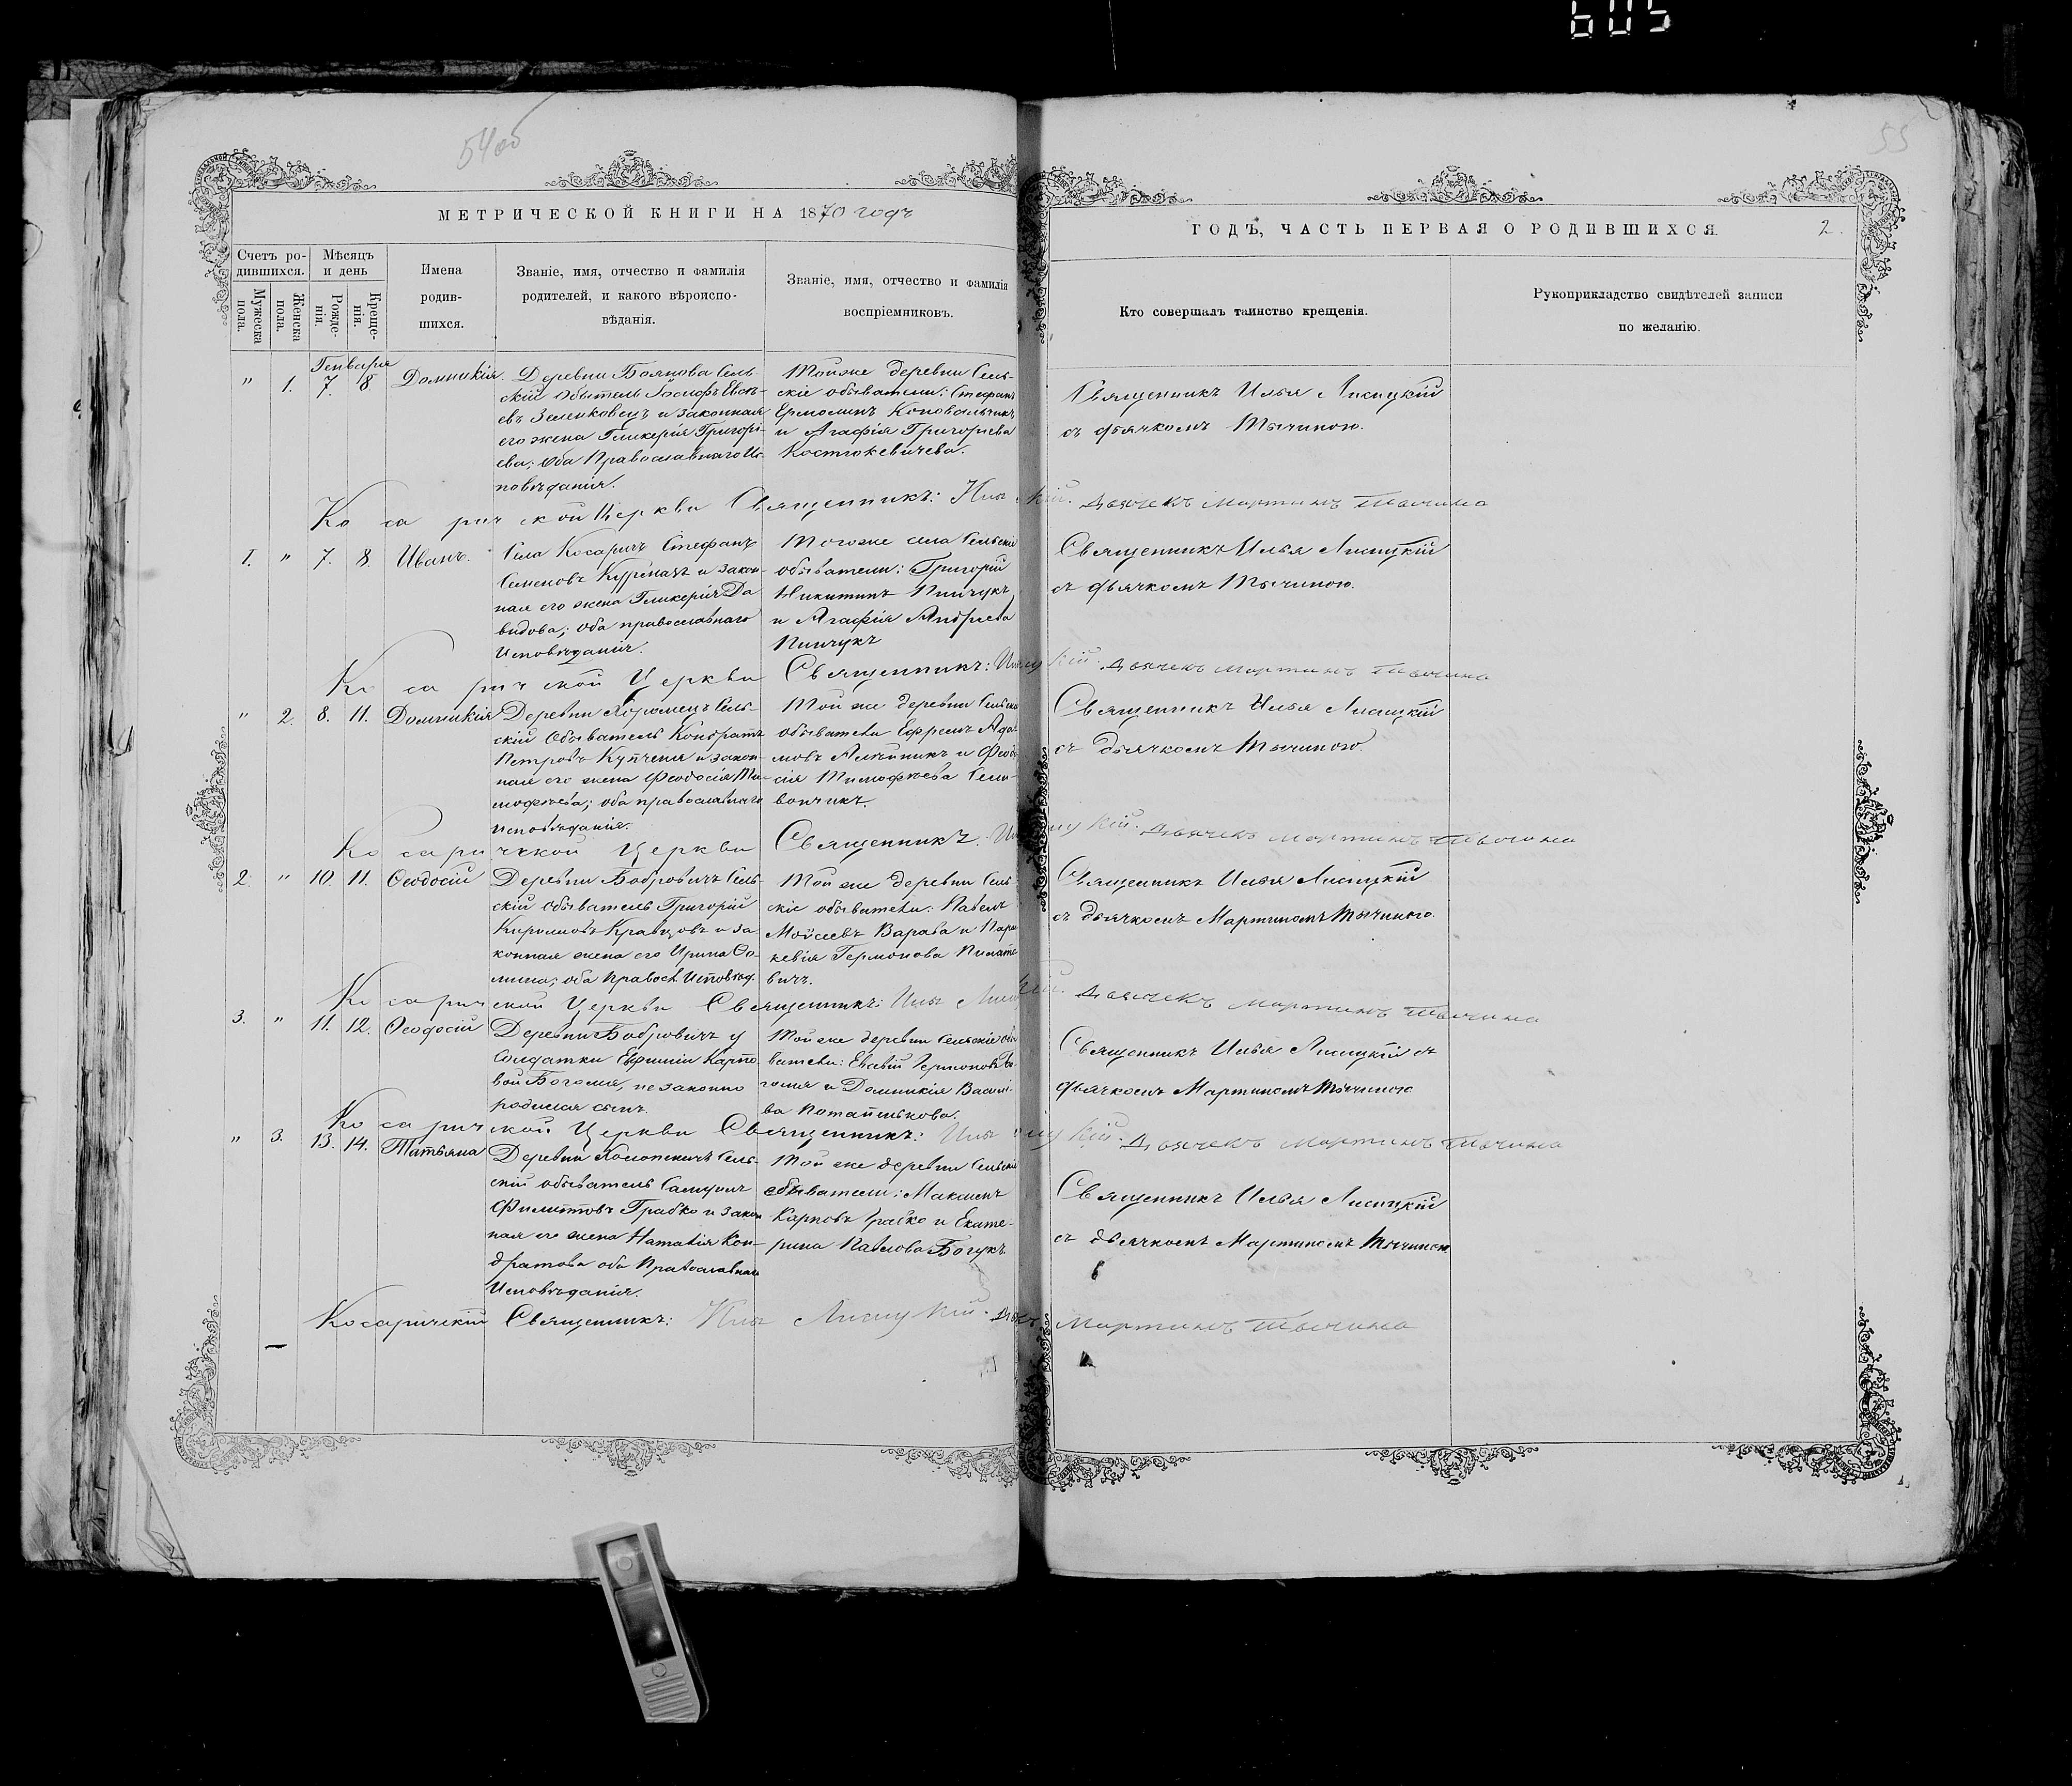 605
54об
55
МЕТРИЧЕСКОЙ КНИГИ НА 1870 годъ
ГОДЪ, ЧАСТЬ ПЕРВАЯ О РОДИВШИХСЯ.
2.
Счетъ ро-
дившихся.
Мужеска
пола.
Женска
пола.
Мѣсяцъ
и день
Рожде-
нія.
Креще-
нія.
Имена
родив-
шихся.
Званіе, имя, отчество и фамилія
родителей, и какого вѣроиспо-
вѣданія.
Званіе, имя, отчество и фамилія
воспріемниковъ.
Кто совершалъ таинство крещенія.
Рукоприкладство свидѣтелей записи
по желанію.
Генваря
" 1. 7. 8 Домникія.
Деревни Боянова Сель-
скій обыватель Іосифъ
Зеленковецъ и законная
его жена Гликерія Григорі-
ева; оба Православнаго Ис-
повѣданія.
Тойже деревни Сель-
скіе обыватели: Стефанъ
Ермолинъ Коновальчикъ
и Агафія Григорьева
Костюкевичева.
Священникъ Илья Лисицкій
съ дьячкомъ Тычиною.
Косаричской Церкви Священникъ: Дьячекъ Мартинъ Тычина
1. " 7. 8. Иванъ.
Села Косаричъ Стефанъ
Семеновъ и закон-
ная его жена Гликерія Да
видова; оба православнаго
Исповѣданія.
Тогоже села Сельскіе
обыватели: Григорій
Никитинъ Пинчукъ
и Агафія Андреева
Пинчукъ
Священникъ Илья Лисицкій
съ дьячкомъ Тычиною.
Косаричской Церкви Священникъ: Дьячекъ Мартинъ Тычина
" 2. 8. 11. Домникія
Деревни Хоромецъ Сель-
скій Обыватель Кондратъ
Петровъ Купченя и закон-
ная его жена Феодосія Ти-
мофѣева; оба православнаго
Исповѣданія.
Той же деревни Сельскіе
обыватели Ефремъ Ада-
мовъ и Феодо
сія Тимофѣева Сели-
вончикъ.
Священникъ Илья Лисицкій
съ дьячкомъ Тычиною.
Косаричской Церкви Священникъ. Дьячекъ Мартинъ Тычина
2. " 10. 11. Ѳеодосій
Деревни Бобровичъ Сель-
скій обыватель Григорій
Кравцовъ и за
конная жена его Ирина Ѳо-
мина; оба Правосл. Исповѣд.
Той же деревни Сель-
скіе обыватели: Павелъ
Моѵсеевъ Варава и Пара
кевія Гермонова
вичъ.
Священникъ Илья Лисицкій
съ дьячкомъ Мартиномъ Тычиною.
Косаричской Церкви Священникъ: Дьячекъ Мартинъ Тычина
3. " 11. 12. Ѳеодосій
Деревни Бобровичъ у
Солдатки Евфиміи Карпо
вой незаконно
родился сынъ.
Той же деревни Сельскіе обы
ватели: Евсевій Гермоновъ
и Домникія Васил
ва Потапенькова.
Священникъ Илья Лисицкій съ
дьячкомъ Мартиномъ Тычиною
Косаричской Церкви Священникъ: Дьячекъ Мартинъ Тычина
" 3. 13. 14. Татьяна
Деревни Холопеничъ Сель-
скій обыватель Самуилъ
Филипповъ Грабко и закон
ная его жена Наталія Кон-
дратова оба Православнаго
Исповѣданія.
Той же деревни Сельскіе
обыватели: Максимъ
Карповъ Грабко и Екате-
рина Павлова Богукъ
Священникъ Илья Лисицкій
съ дьячкомъ Мартиномъ Тычиною.
Косаричскій Священникъ: Илія Лисицкій. Дьяч. Мартинъ Тычина